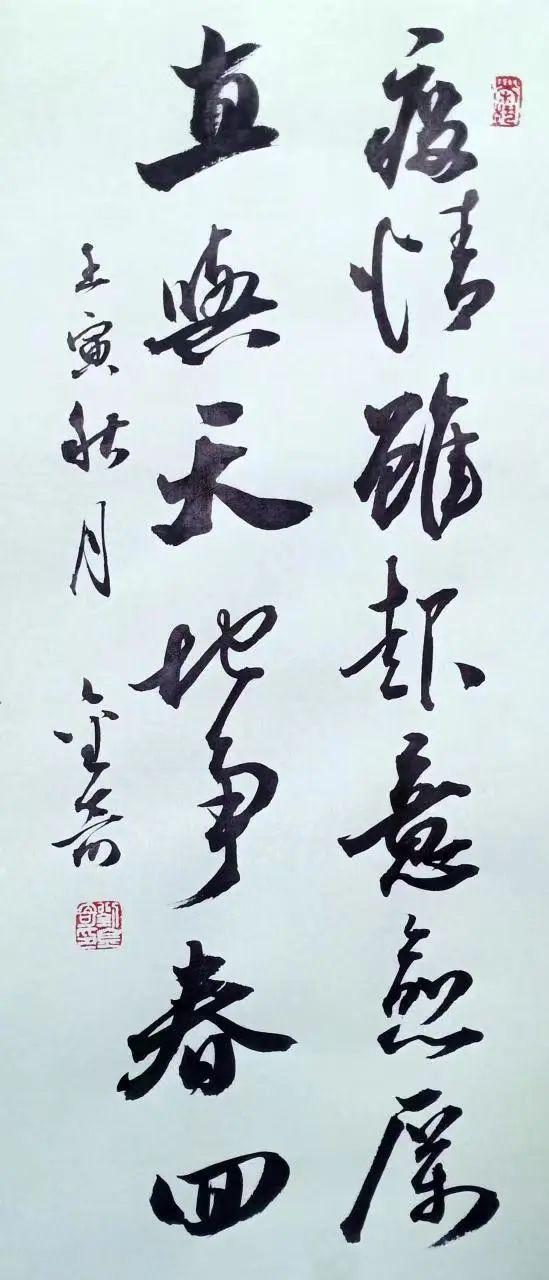 疫情雖意愈厲
直與天地爭春回
壬寅秋月 金奇